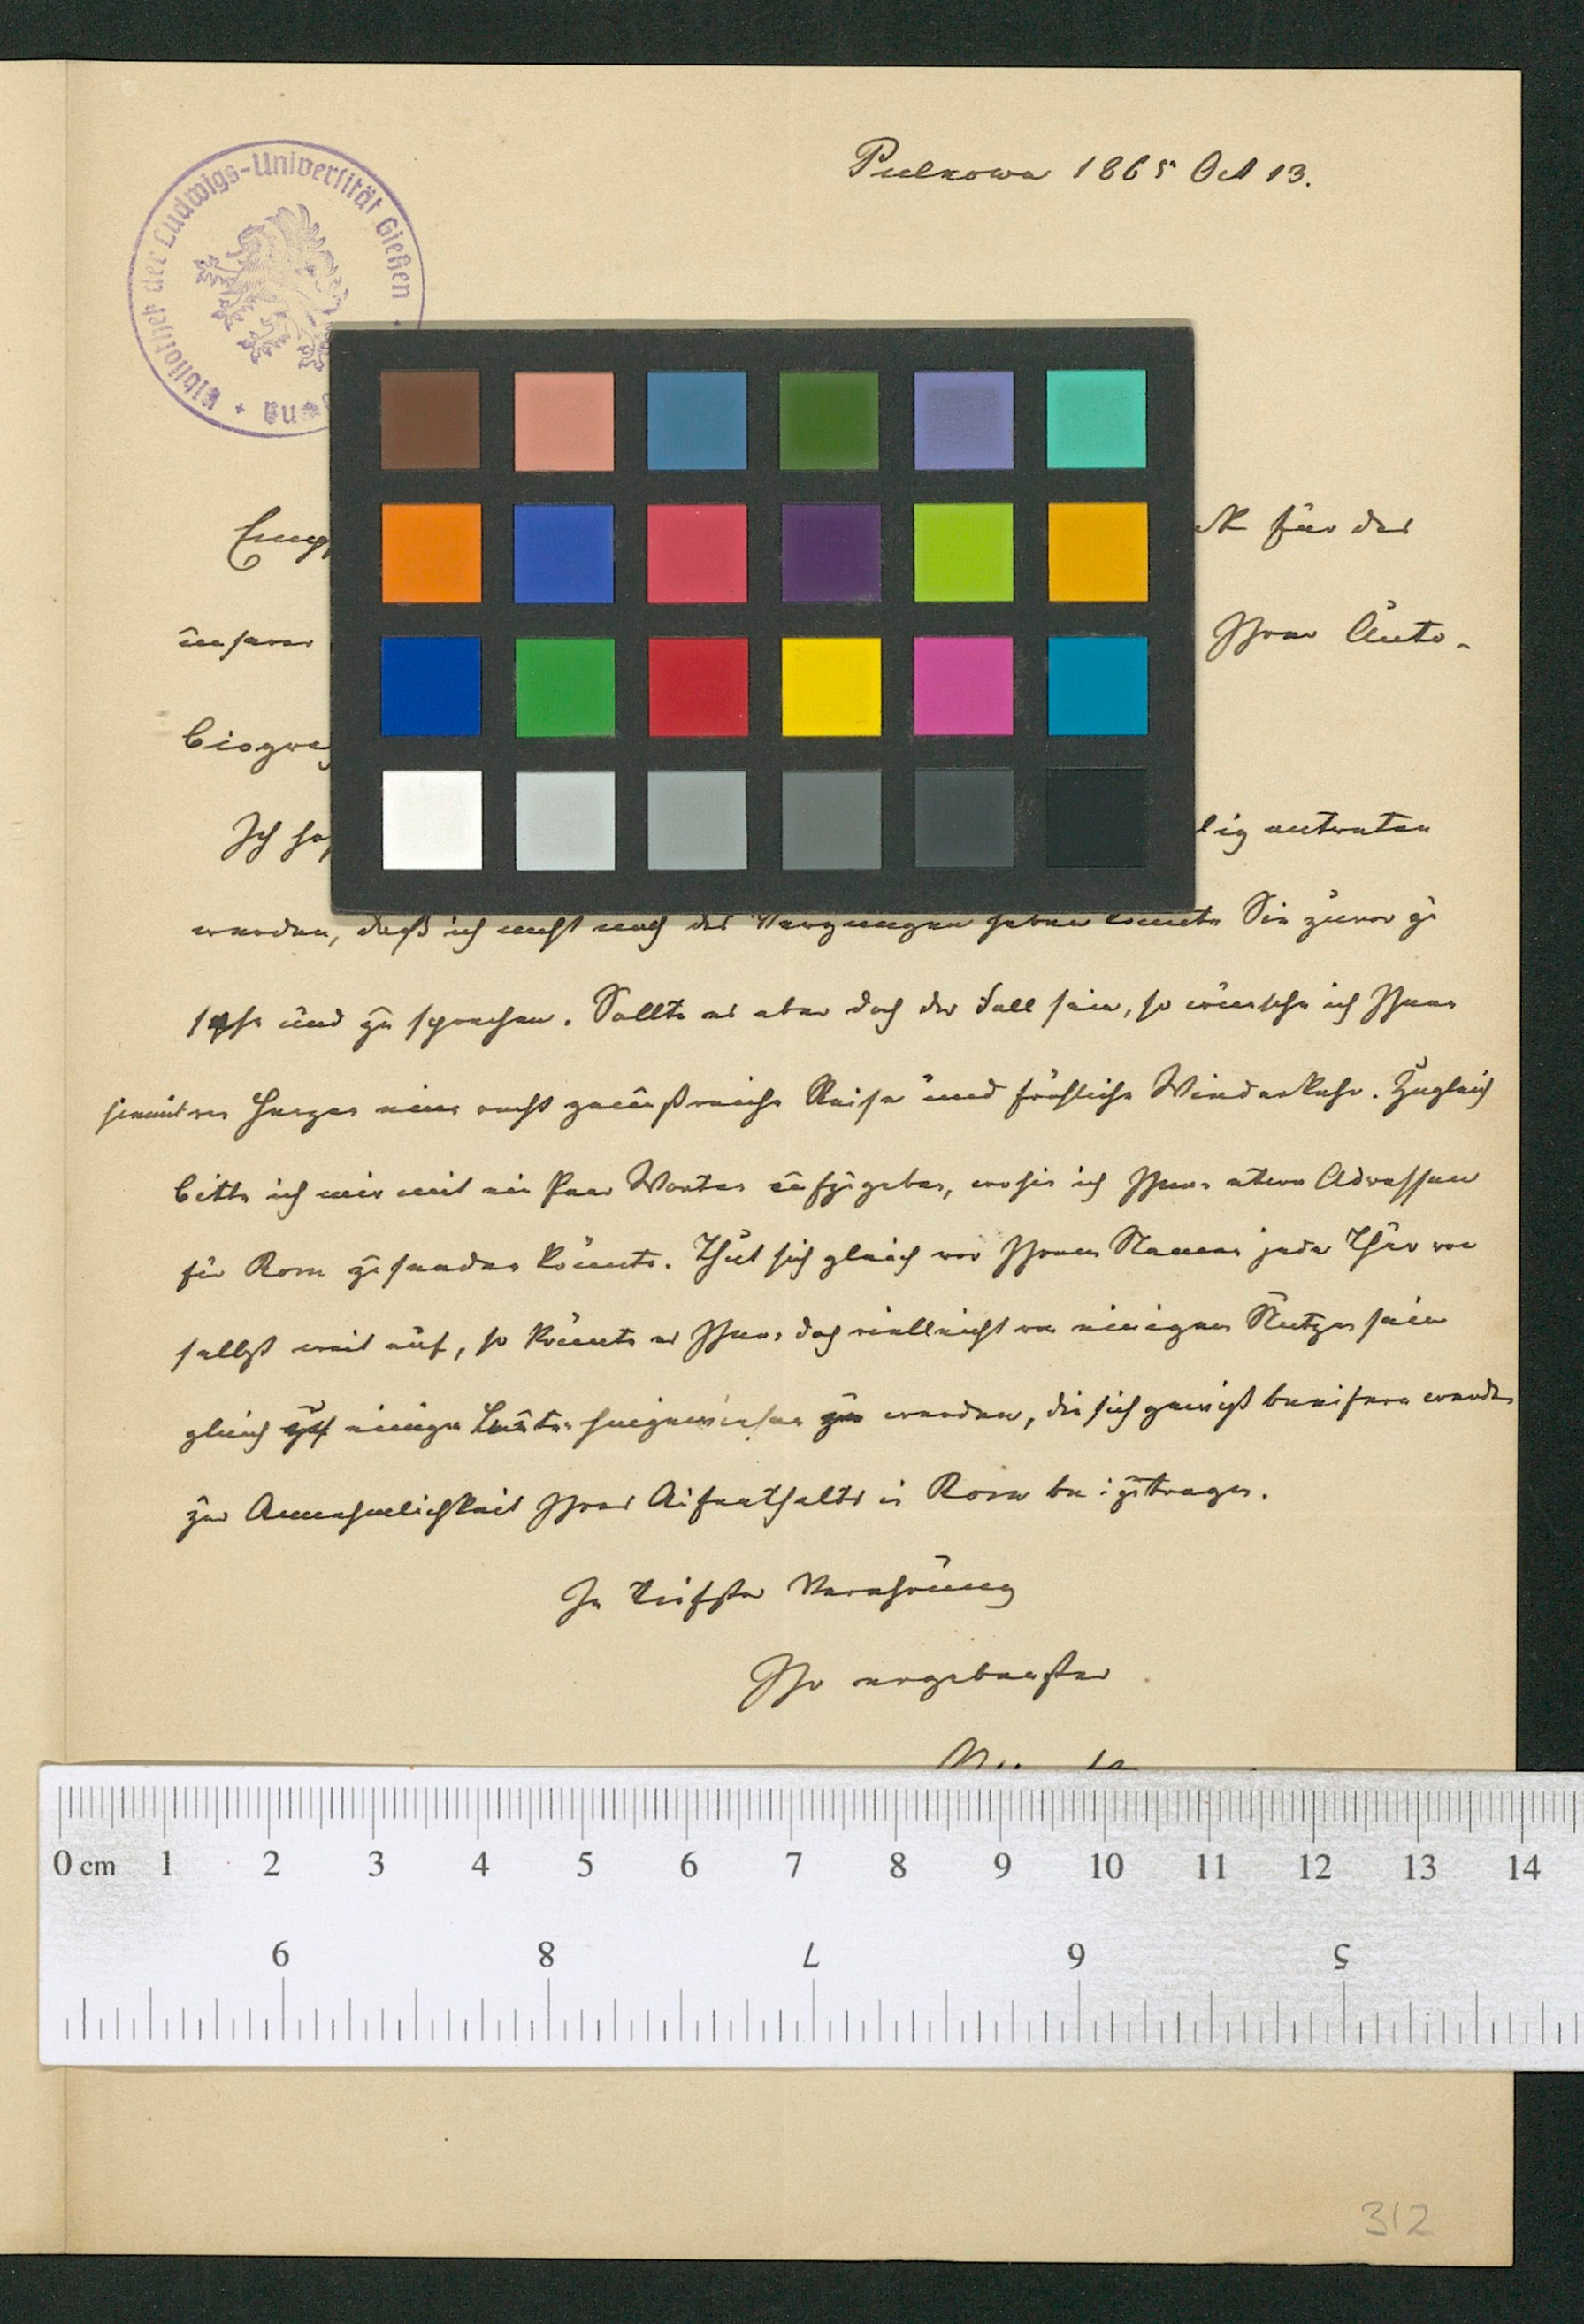 Pulkowa 1865 Oct 13.
Bibliothek der Ludwigs-Universität Gießen
für das
unserer Ihrer Auto-
Ich
eilig antreten
werden, daß ich nicht noch das Vergnügen haben konnte Sie zuvor zu
sehn und zu sprechen. Sollte es aber doch der Fall sein, so wünsche ich Ihnen
von Herzen eine recht genußreiche Reise und fröhliche Wiederkehr. Zugleich
bitte ich mir mit ein Paar Worten aufzugeben, wohin ich Ihnen etwa Adressen
für Rom zusenden könnte. Thut sich gleich vor Ihrem Namen jede Thür von
selbst weit auf, so könnte es Ihnen doch vielleicht von einigem Nutzen sein
gleich an einige Leute hingewiesen zu werden, die sich gewiß beeifern werden
zur Annehmlichkeit Ihres Aufenthalts in Rom beizutragen.
In tiefster Verehrung
Ihr ergebenster
0 cm 1 2 3 4 5 6 7 8 9 10 11 12 13 14
9 8 7 6 5
312